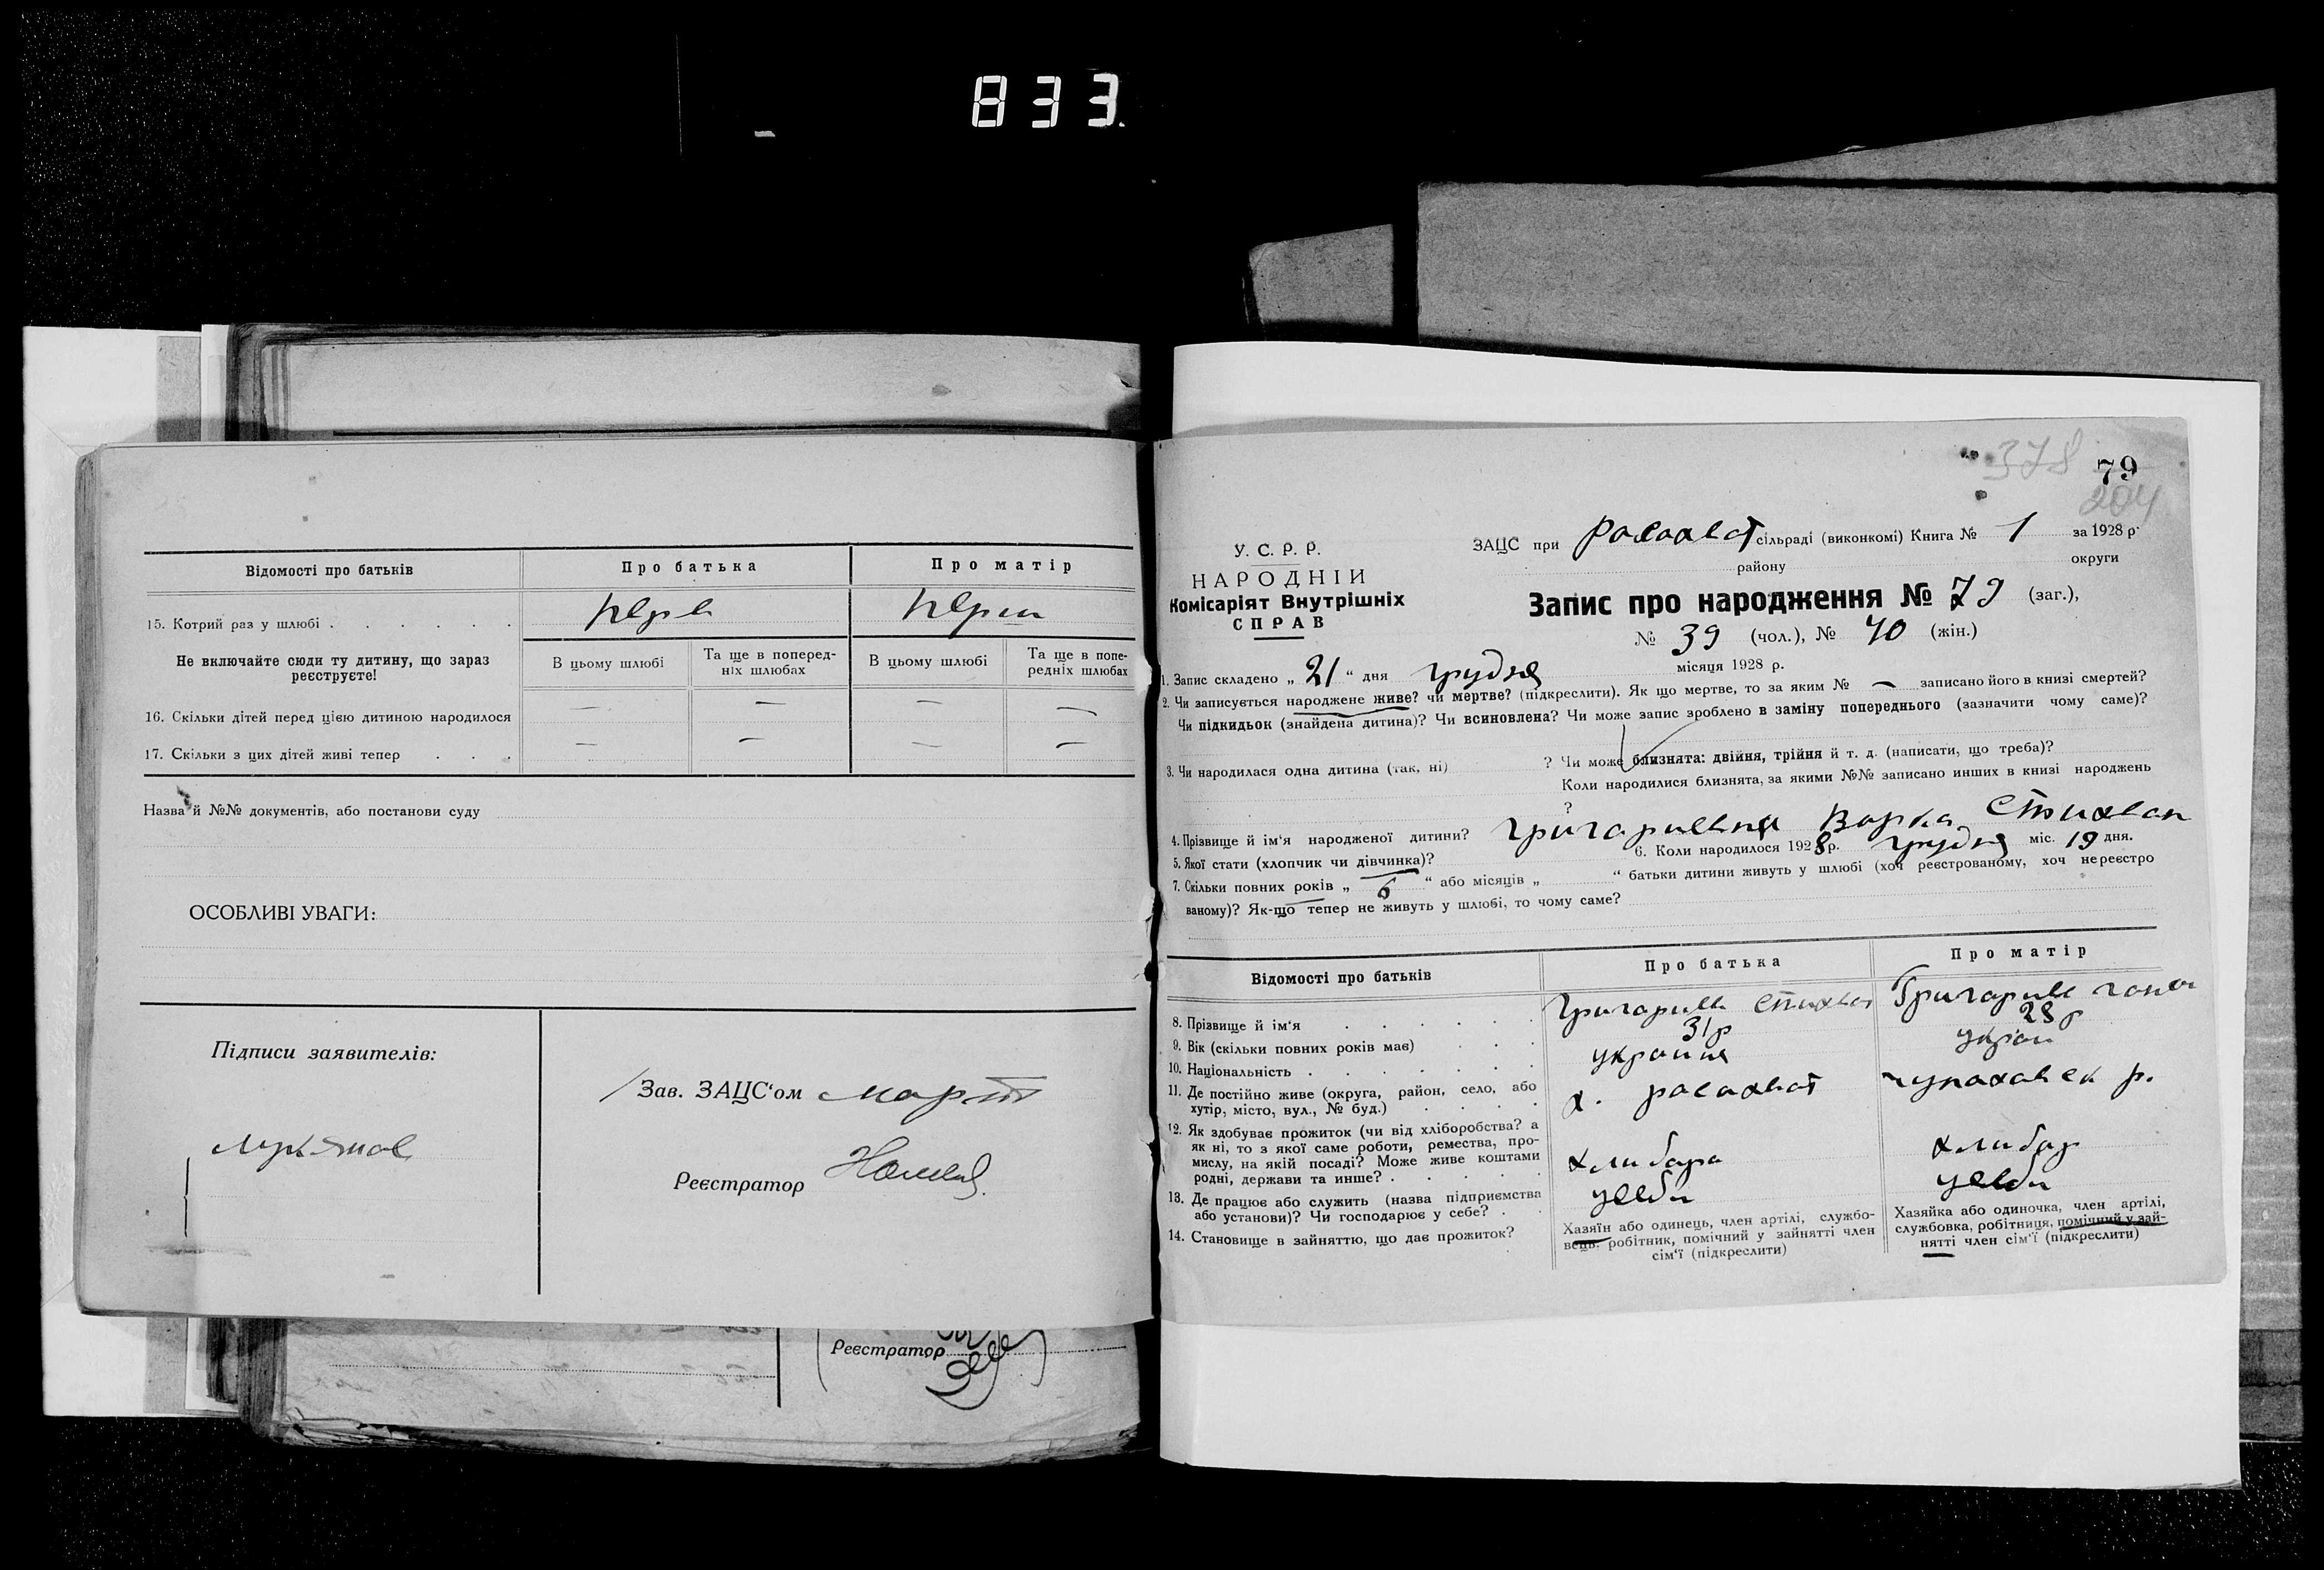 833.
Відомості про батьків
Про батька
Про матір
15. Котрий раз у шлюбі . . . . . .
Не включайте сюди ту дитину, що зараз
реєструєте!
В цьому шлюбі
Та ще в поперед-
ніх шлюбах
В цьому шлюбі
Та ще в попе-
редніх шлюбах
16. Скільки дітей перед цією дитиною народилося
— — — —
17. Скільки з цих дітей живі тепер . . .
— — — —
Назва й №№ документів, або постанови суду
ОСОБЛИВІ УВАГИ:
Підписи заявителів:
Зав. ЗАЦС'ом
Реєстратор
Реєстратор
378
79
204
У. С. Р. Р.
НАРОДНІЙ
Комісаріят Внутрішніх
СПРАВ
ЗАЦС при росохват сільраді (виконкомі) Книга № 1 за 1928 р.
району округи
Запис про народження № 79 (заг.),
№ 39 (чол.), № 40 (жін.)
1. Запис складено „ 21 “ дня грудня місяця 1928 р.
2. Чи записується народжене живе? чи мертве? (підкреслити). Як що мертве, то за яким № — записано його в книзі смертей?
Чи підкидьок (знайдена дитина)? Чи всиновлена? Чи може запис зроблено в заміну попереднього (зазначити чому саме)?
3. Чи народилася одна дитина (так, ні) ? Чи може близнята: двійня, трійня й т. д. (написати, що треба)?
Коли народилися близнята, за якими №№ записано инших в книзі народжень
?
4. Прізвище й ім'я народженої дитини? Варка
5. Якої стати (хлопчик чи дівчинка)? 6. Коли народилося 1928 р. грудня міс. 19 дня.
7. Скільки повних років „ 6 “ або місяців „ “ батьки дитини живуть у шлюбі (хоч реєстрованому, хоч нереєстро
ваному)? Як-що тепер не живуть у шлюбі, то чому саме?
Відомості про батьків
Про батька
Про матір
8. Прізвище й ім'я . . . . . .
9. Вік (скільки повних років має) . . . 31р 28р
10. Національність . . . . . . . україня україн
11. Де постійно живе (округа, район, село, або
хутір, місто, вул., № буд.) . . . . х. росохват р.
12. Як здобуває прожиток (чи від хліборобства? а
як ні, то з якої саме роботи, ремества, про-
мислу, на якій посаді? Може живе коштами
родні, держави та инше? . . . . .
13. Де працює або служить (назва підприємства
або установи)? Чи господарює у себе? . .
14. Становище в зайняттю, що дає прожиток?
Хазяїн або одинець, член артілі, службо-
вець, робітник, помічний у зайнятті член
сім'ї (підкреслити)
Хазяйка або одиночка, член артілі,
службовка, робітниця, помічний у зай-
нятті член сім'ї (підкреслити)